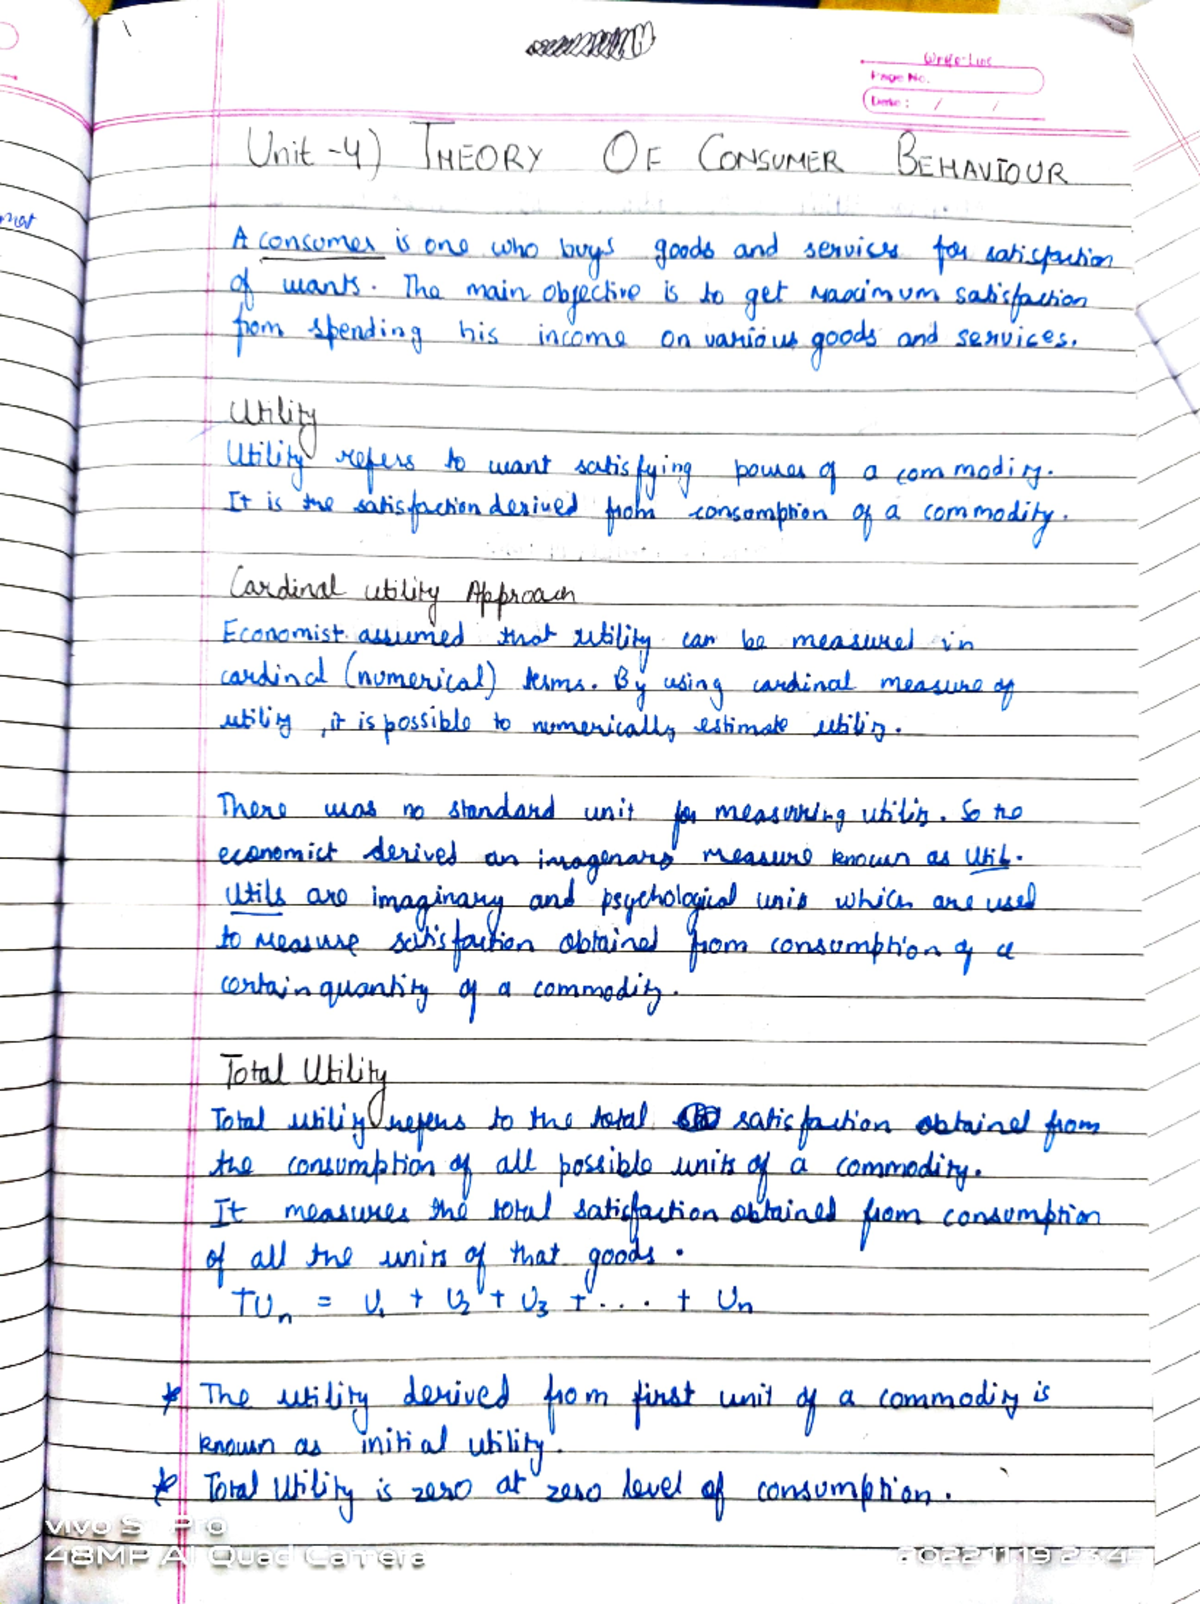 Write Line
Page No.
Date: / /
Unit-4) THEORY OF CONSUMER BEHAVIOUR
A consumer is one who buys goods and services for satisfaction
of wants. The main objective is to get Maximum satisfaction
from spending his income on various goods and services.
Utility
Utility refers to want satisfying power of a commodity.
It is the satisfaction derived from consumption of a commodity.
Cardinal utility Approach
Economist assumed that utility can be measured in
cardinal (numerical) terms. By using cardinal measure of
utility, it is possible to numerically estimate utility.
There was no standard unit for measuring utility. So the
economist derived an imagenary measure known as Util.
Utils are imaginary and psychological units which are used
to Measure satisfaction obtained from consumption of a
certain quantity of a commodity.
Total Utility
Total utility refers to the total satisfaction obtained from
the consumption of all possible units of a commodity.
It measures the total satisfaction obtained from consumption
of all the units of that goods.
TUn = U1 + U2 + U3 + .... + Un
* The utility derived from first unit of a commodity is
known as initial utility.
* Total Utility is zero at zero level of consumption.
vivo S1 Pro
48MP AI Quad Camera
2022.11.19 23:4